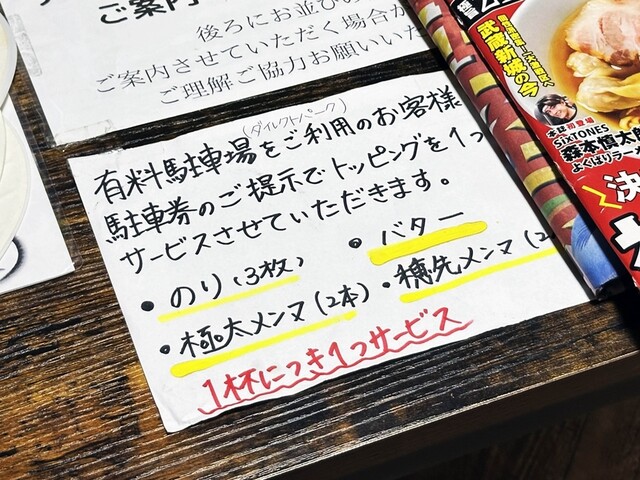 ご案内
後ろにお並びの
ご案内させていただく場合が
ご理解ご協力お願いいた
(ダイレクトパーク)
有料駐車場をご利用のお客様
駐車券のご提示でトッピングを1つ
サービスさせていただきます。
・のり(3枚)
・バター
・極太メンマ(2本)
・穂先メンマ(2
1杯につき1つサービス
武蔵新城の今
本誌初登場
SixTONES
森本慎太郎
よくばりラーメ
決